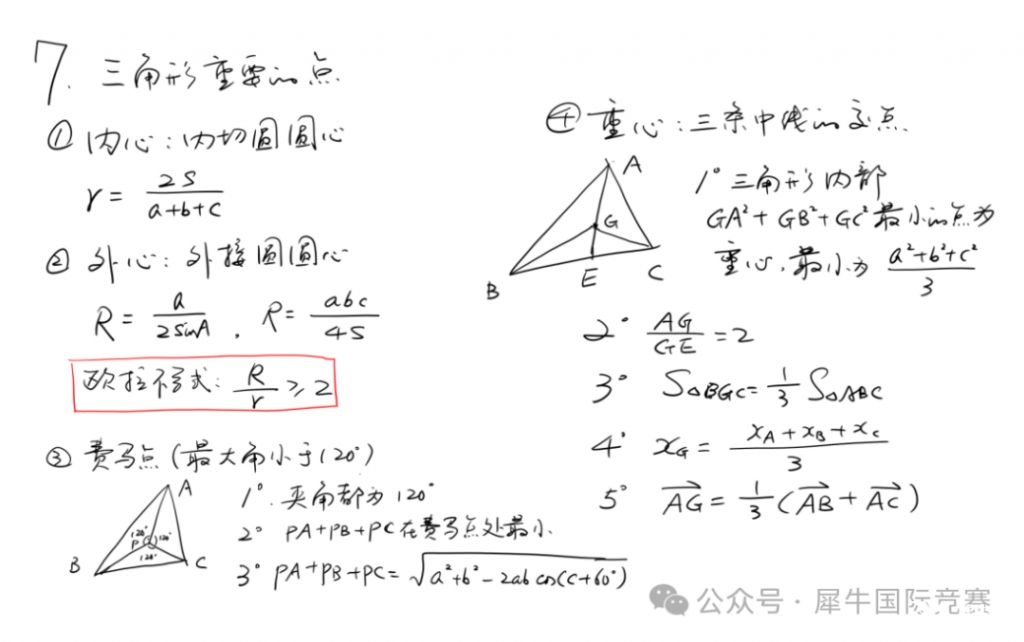 7. 三角形重要的点
① 内心：内切圆圆心
r = 2S/(a+b+c)
② 外心：外接圆圆心
R = a/(2sinA) , R = abc/(4S)
欧拉不等式：R/r ≥ 2
③ 费马点（最大角小于120°）
A
B
C
P
120°
120°
120°
1° 夹角都为120°
2° PA+PB+PC在费马点处最小
3° PA+PB+PC = √(a²+b²-2ab cos(C+60°))
④ 重心：三条中线的交点
A
G
B
E
C
1° 三角形内部
GA²+GB²+GC²最小的点为
重心，最小为 (a²+b²+c²)/3
2° AG/GE = 2
3° S△BGC = 1/3 S△ABC
4° x_G = (x_A+x_B+x_C)/3
5° AG→ = 1/3 (AB→ + AC→)
公众号·犀牛国际竞赛